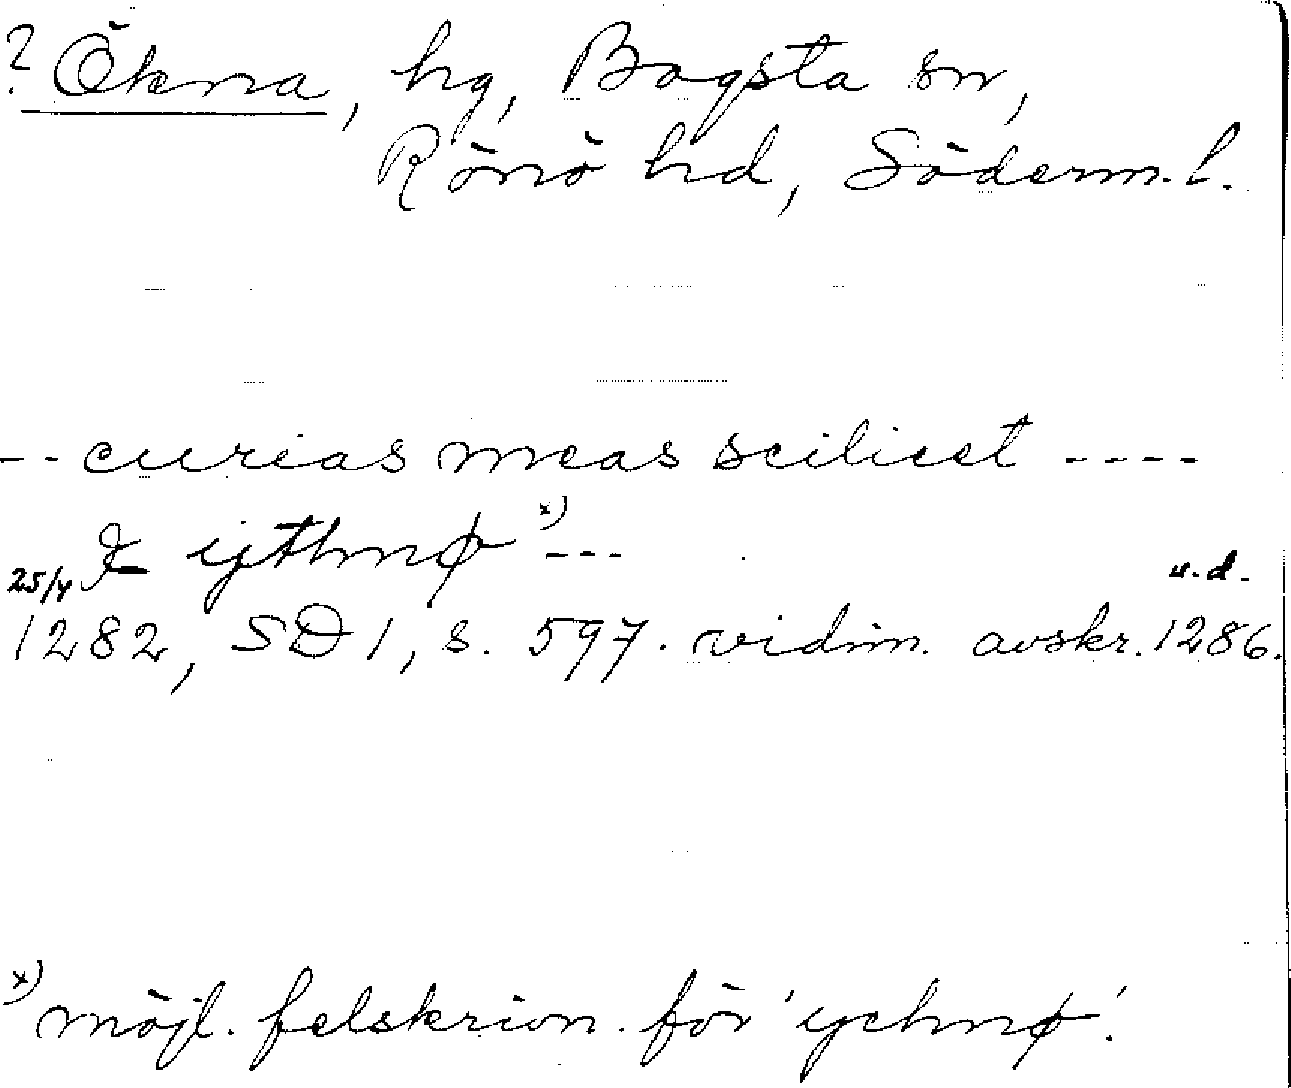 ? Ökna, hg, Bogsta sn,
Rönö hd, Söderm. l.
-- curias meas scilicet ----
& ythnø x) ---
25/4 u.d.
1282, SD 1, s. 597. vidim. avskr. 1286.
x) möjl. felskrivn. för 'ychnø'.